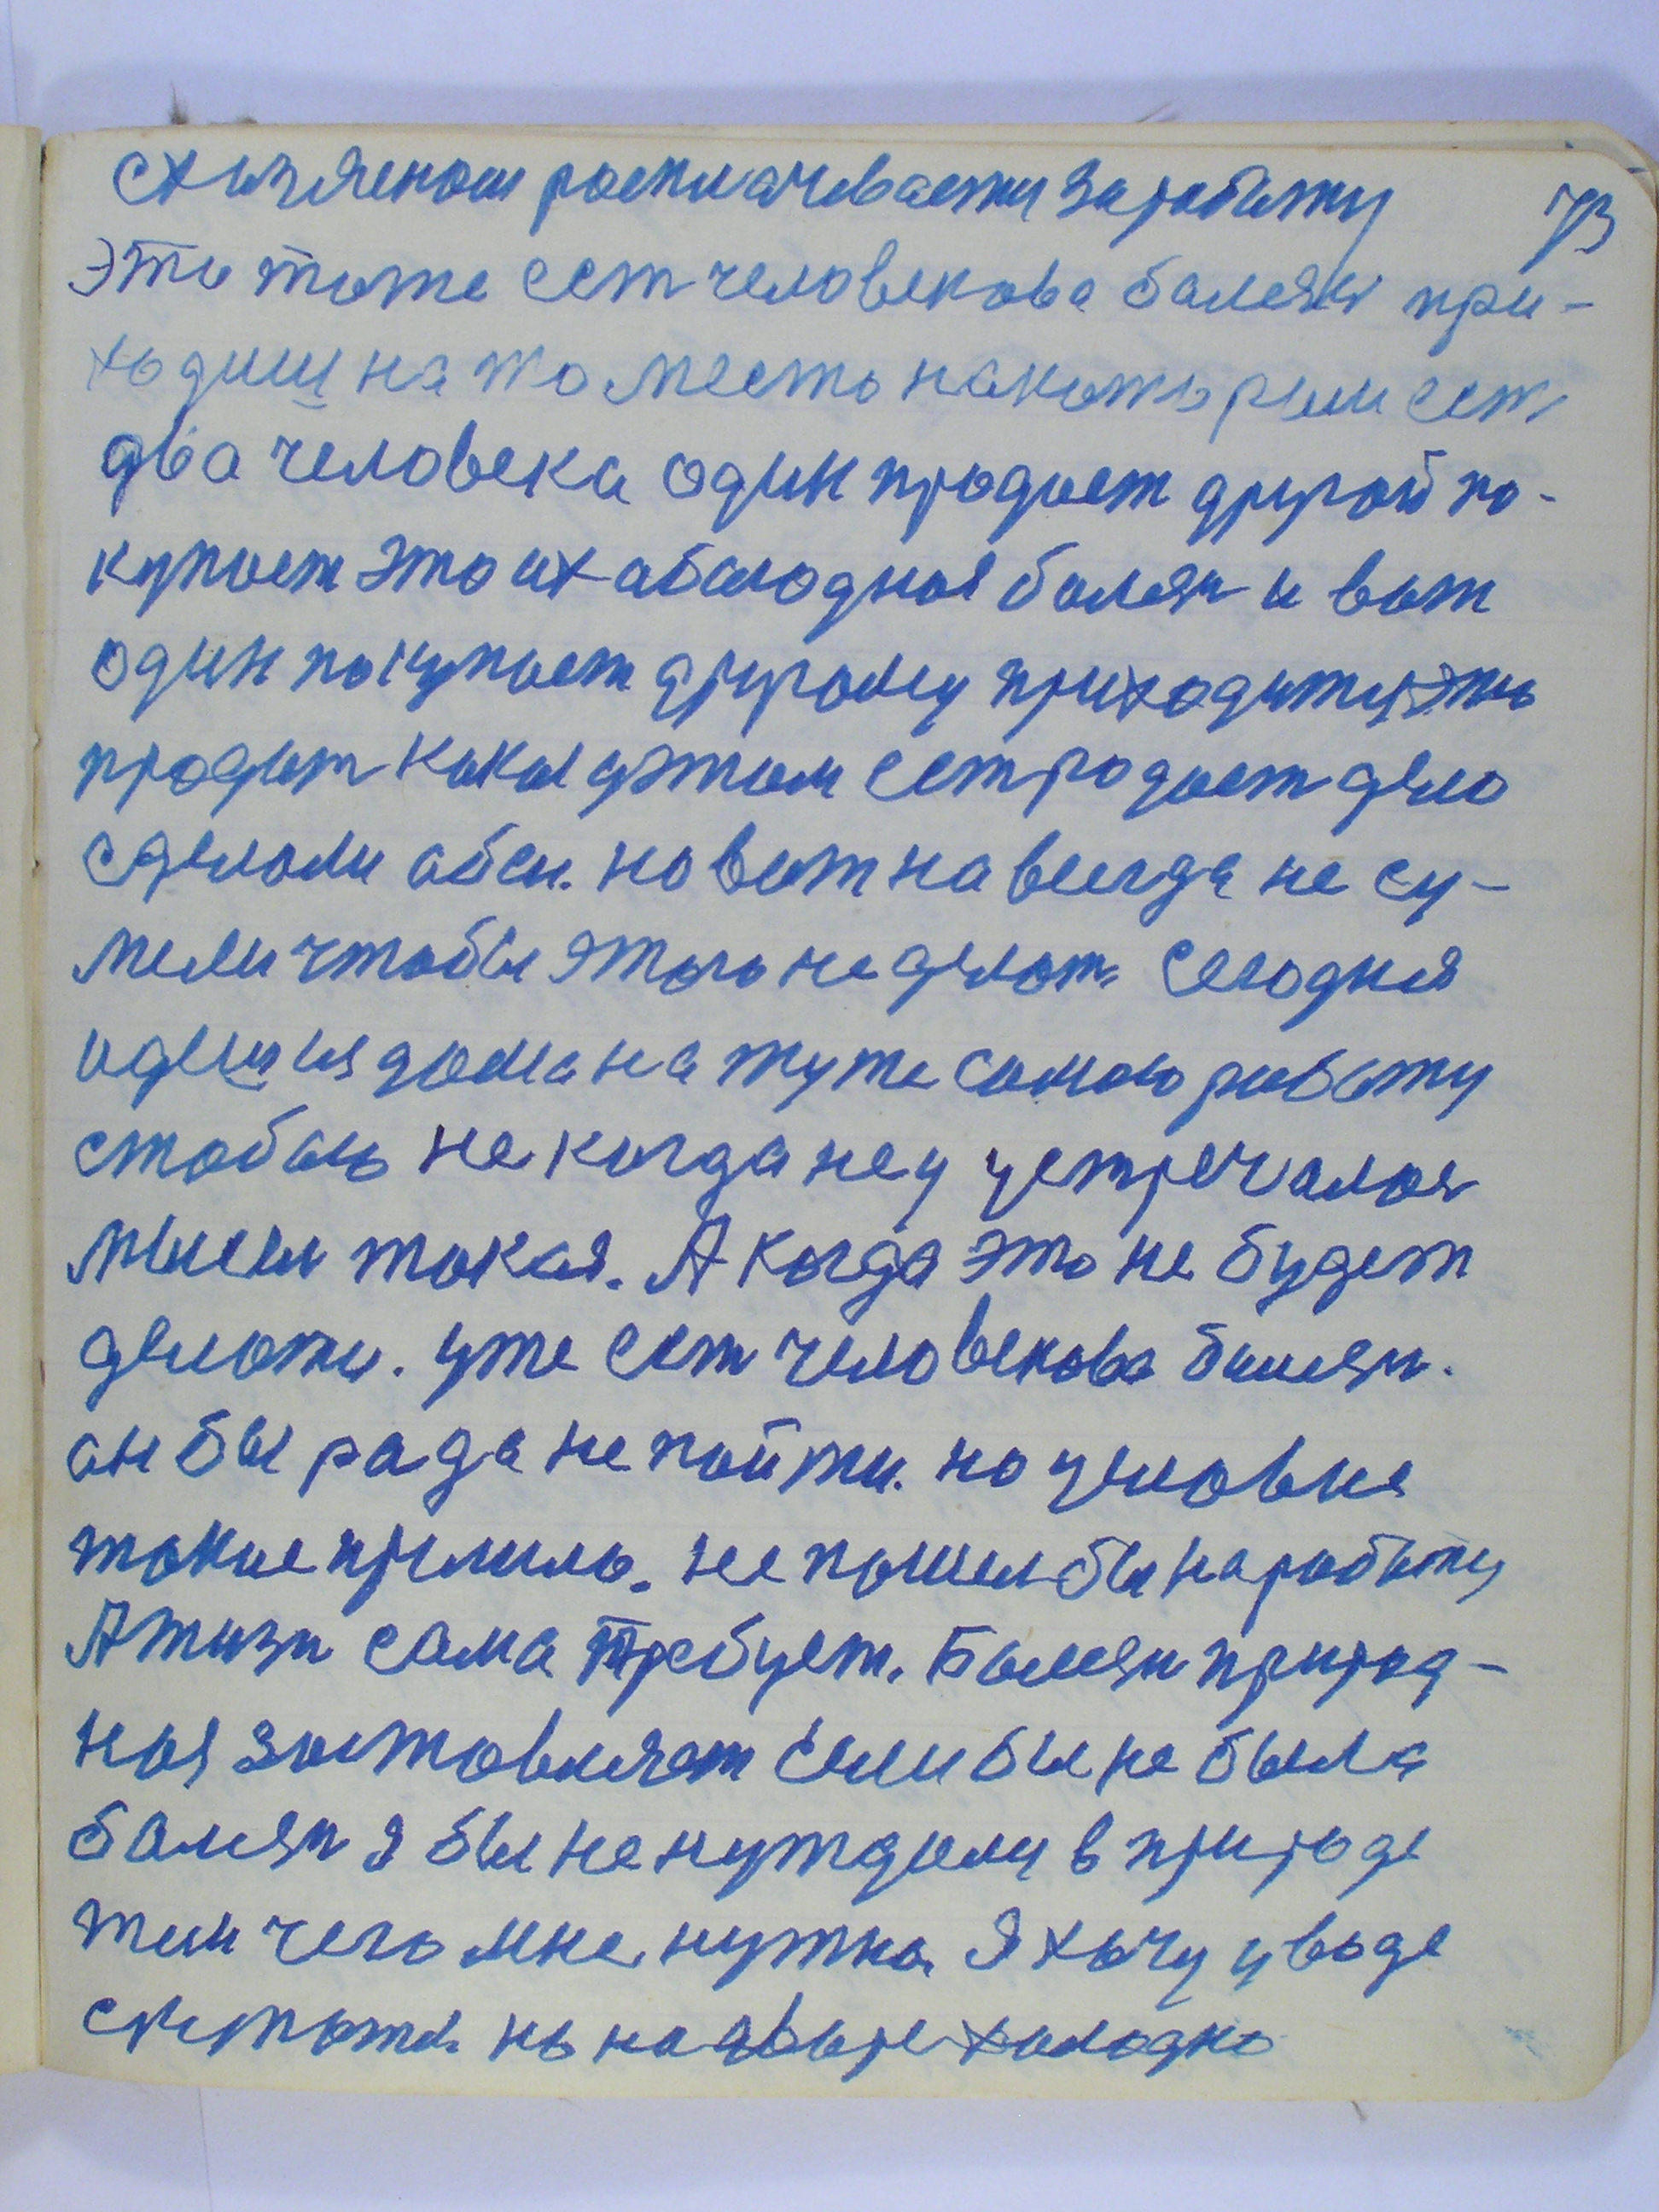 схизяеном росплачиваетця за работу 73
Это тоже ест человекова балезн при-
ходиш на то место накоторым ест
два человека один продает другой по-
купает это их абиходная болезн и вот
один покупает другому приходитця это
продат какая уэтом ест родост дело
сделоли абои. но вот на всегда не су-
мели чтобы этого не делот. Сегодня
идеш из дома на туже самою работу
стобою не когда не у устречалося
мысль токая. А когда это не будет
делоти. уже ест человекова болезн.
он бы рад а не пойти. но условия
токие пришлось. не пошел бы на работу
А жизн сама требует. Болезн природ-
ная зоставляет Если бы не была
балезн я бы не нуждолц в природе
ничего мне нужна Я хочу у воде
но на дворе холодно